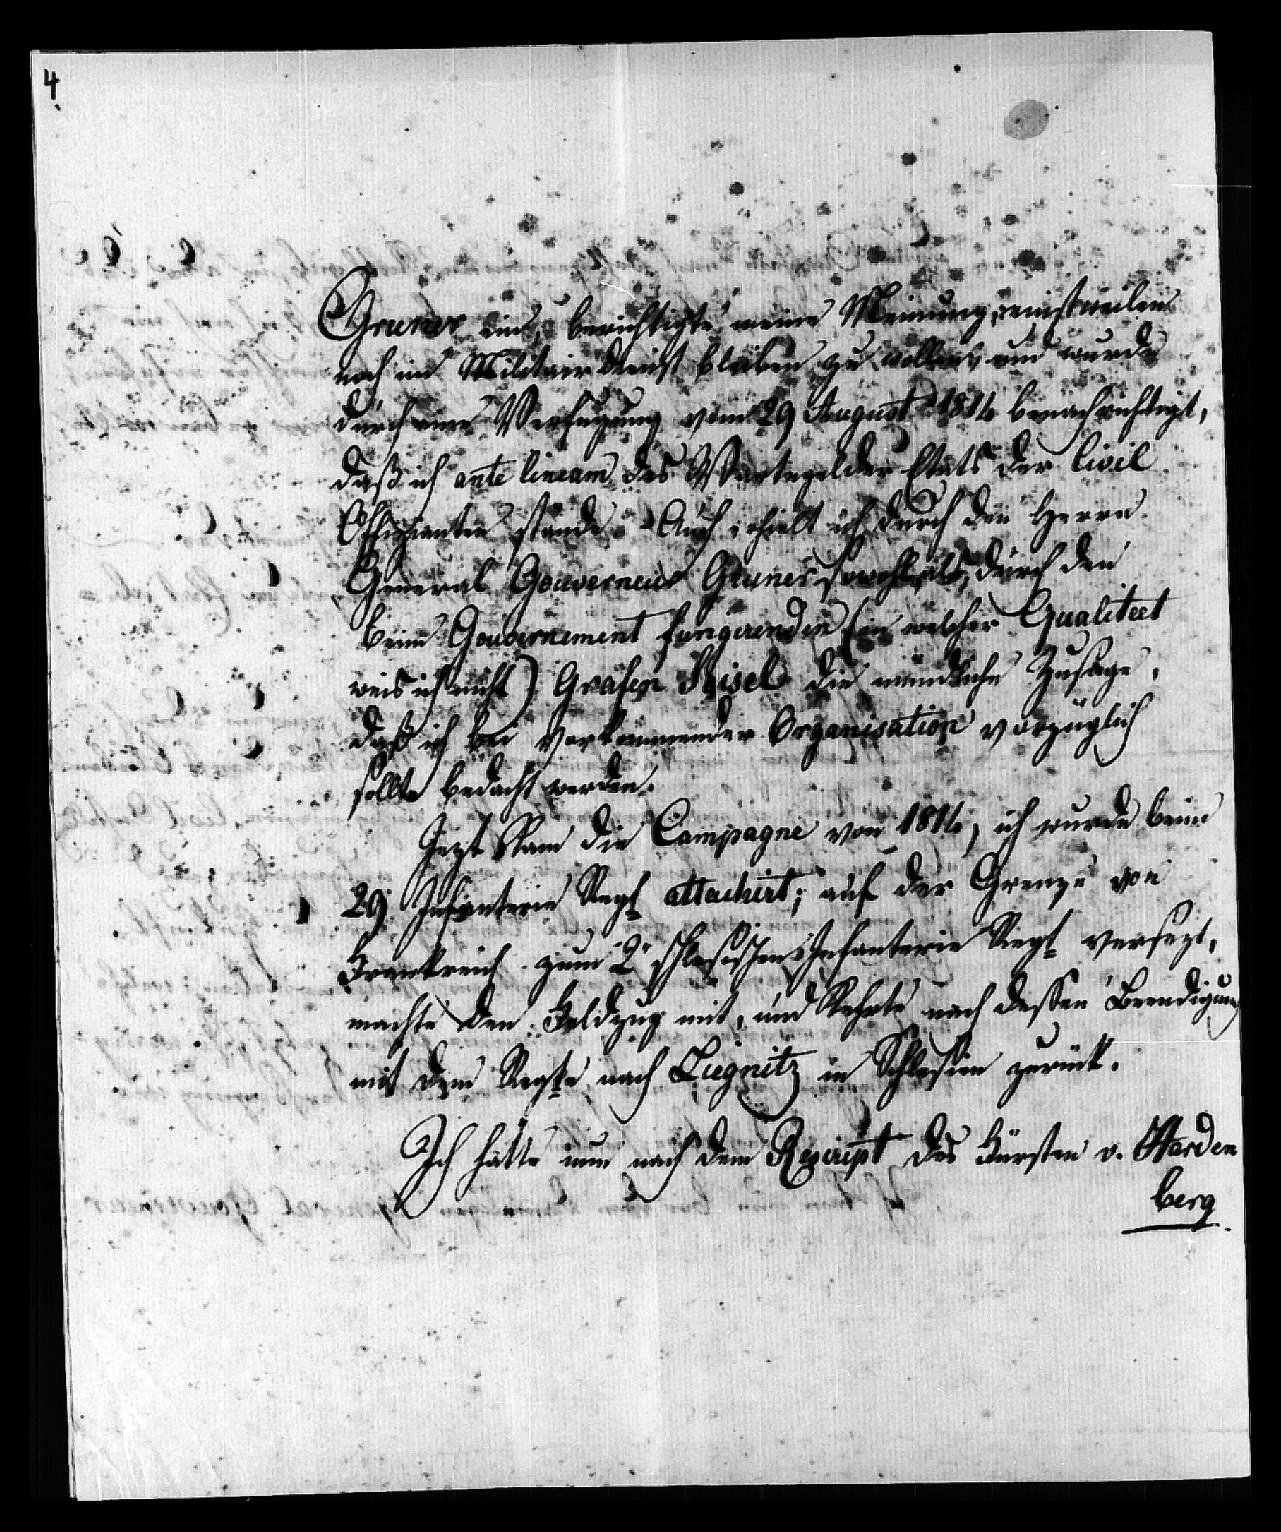 4
Gruner ein, berichtigte meine Meinung, einstweilen
noch im Militair dienst bleiben zu wollen und wurde
durch eine Verfügung vom 29 August 1814 benachrichtigt,
daß ich ante lineam des Wartegelder Etats der Civil
Offizianten stände. Auch erhielt ich durch den Herrn
General Gouverneur Gruner sowohl als durch den
beim Gouvernement fungirenden (in welcher Qualitaet
weis ich nicht) Grafen Kisel die mündliche Zusage,
daß ich bei vorkommender Organisation vorzüglich
sollte bedacht werden.
Jezt kam die Campagne von 1814, ich wurde beim
29. Infanterie Regt attachirt; auf der Grenze von
Frankreich zum 2. schlesischen Infanterie Regt versezt,
machte den Feldzug mit, und kehrte nach dessen Beendigung
mit dem Regte nach Liegnitz in Schlesien zurück.
Ich hätte nun nach dem Rescript des Fürsten v. Harden
berg